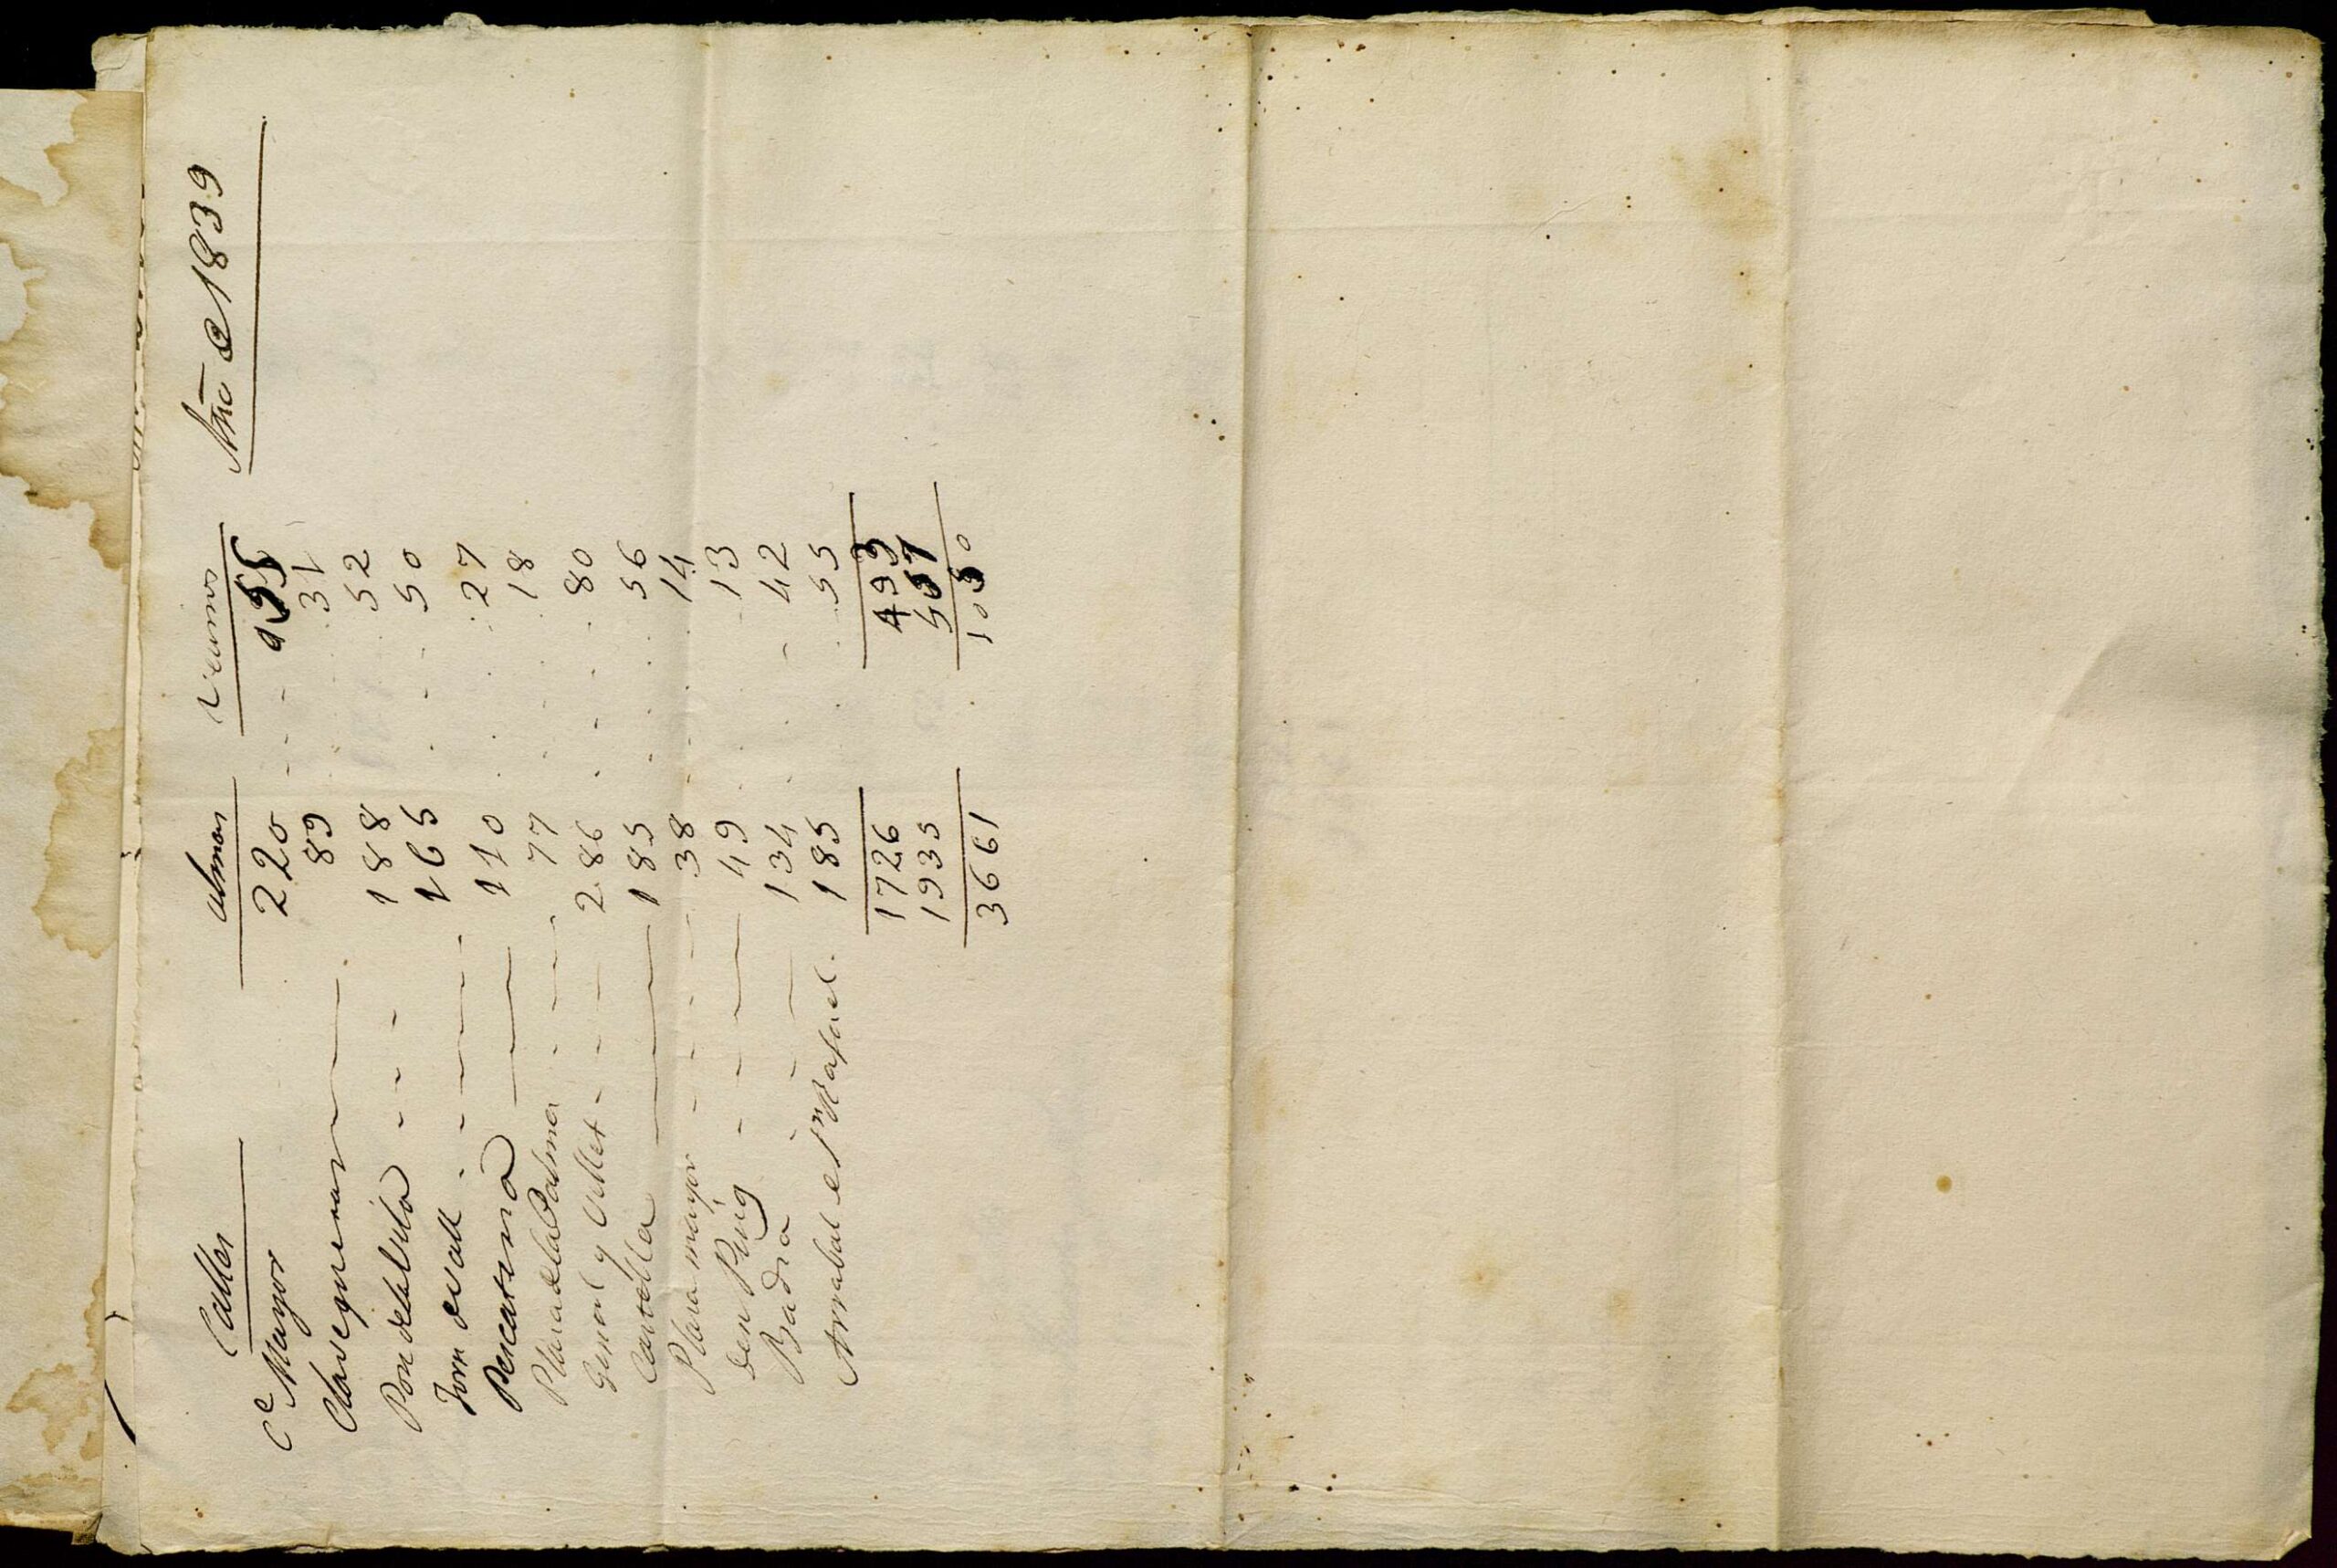 Calles Almas Vecinos Año de 1839
Ce Mayor 220 55
Clavegueras 89 31
Pou dela Vila 188 52
Forn de vall 165 50
Pescateria 110 27
Plasa dela Palma 77 18
y 286 80
Castella 185 56
Plasa mayor 38 14
den Puig 49 13
Badia 134 42
Arrabal e Sn Rafael. 185 55
1726 493
1935 557
3661 1050